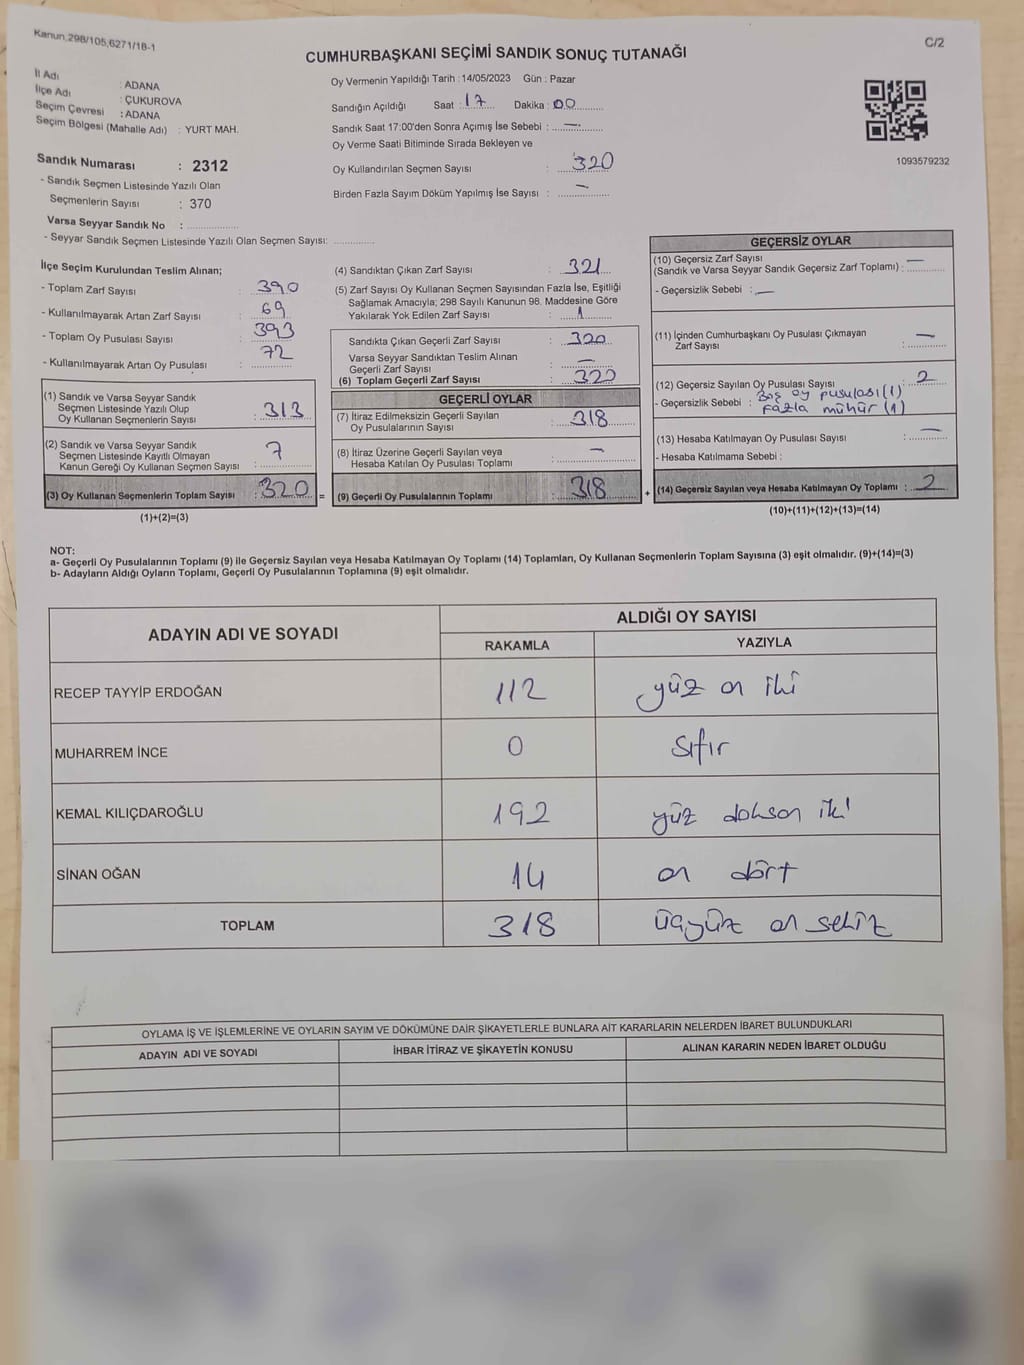 Kanun,298/105,6271/18-1
C/2
CUMHURBAŞKANI SEÇİMİ SANDIK SONUÇ TUTANAĞI
İl Adı : ADANA
İlçe Adı : ÇUKUROVA
Seçim Çevresi : ADANA
Seçim Bölgesi (Mahalle Adı) : YURT MAH.
Sandık Numarası : 2312
- Sandık Seçmen Listesinde Yazılı Olan
Seçmenlerin Sayısı : 370
Varsa Seyyar Sandık No :
- Seyyar Sandık Seçmen Listesinde Yazılı Olan Seçmen Sayısı:
Oy Vermenin Yapıldığı Tarih : 14/05/2023 Gün : Pazar
Sandığın Açıldığı Saat : 17 Dakika : 00
Sandık Saat 17:00'den Sonra Açımış İse Sebebi : —
Oy Verme Saati Bitiminde Sırada Bekleyen ve
Oy Kullandırılan Seçmen Sayısı : 320
Birden Fazla Sayım Döküm Yapılmış İse Sayısı : —
1093579232
İlçe Seçim Kurulundan Teslim Alınan;
- Toplam Zarf Sayısı : 390
- Kullanılmayarak Artan Zarf Sayısı : 69
- Toplam Oy Pusulası Sayısı : 393
- Kullanılmayarak Artan Oy Pusulası : 72
(1) Sandık ve Varsa Seyyar Sandık
Seçmen Listesinde Yazılı Olup
Oy Kullanan Seçmenlerin Sayısı : 313
(2) Sandık ve Varsa Seyyar Sandık
Seçmen Listesinde Kayıtlı Olmayan
Kanun Gereği Oy Kullanan Seçmen Sayısı : 7
(3) Oy Kullanan Seçmenlerin Toplam Sayısı : 320 =
(1)+(2)=(3)
(4) Sandıktan Çıkan Zarf Sayısı : 321
(5) Zarf Sayısı Oy Kullanan Seçmen Sayısından Fazla İse, Eşitliği
Sağlamak Amacıyla; 298 Sayılı Kanunun 98. Maddesine Göre
Yakılarak Yok Edilen Zarf Sayısı : 1
Sandıkta Çıkan Geçerli Zarf Sayısı : 320
Varsa Seyyar Sandıktan Teslim Alınan
Geçerli Zarf Sayısı : —
(6) Toplam Geçerli Zarf Sayısı : 320
GEÇERLİ OYLAR
(7) İtiraz Edilmeksizin Geçerli Sayılan
Oy Pusulalarının Sayısı : 318
(8) İtiraz Üzerine Geçerli Sayılan veya
Hesaba Katılan Oy Pusulası Toplamı : —
(9) Geçerli Oy Pusulalarının Toplamı : 318 +
GEÇERSİZ OYLAR
(10) Geçersiz Zarf Sayısı
(Sandık ve Varsa Seyyar Sandık Geçersiz Zarf Toplamı) : —
- Geçersizlik Sebebi : —
(11) İçinden Cumhurbaşkanı Oy Pusulası Çıkmayan
Zarf Sayısı : —
(12) Geçersiz Sayılan Oy Pusulası Sayısı : 2
- Geçersizlik Sebebi : Boş oy pusulası (1)
Fazla mühür (1)
(13) Hesaba Katılmayan Oy Pusulası Sayısı : —
- Hesaba Katılmama Sebebi :
(14) Geçersiz Sayılan veya Hesaba Katılmayan Oy Toplamı : 2
(10)+(11)+(12)+(13)=(14)
NOT:
a- Geçerli Oy Pusulalarının Toplamı (9) ile Geçersiz Sayılan veya Hesaba Katılmayan Oy Toplamı (14) Toplamları, Oy Kullanan Seçmenlerin Toplam Sayısına (3) eşit olmalıdır. (9)+(14)=(3)
b- Adayların Aldığı Oyların Toplamı, Geçerli Oy Pusulalarının Toplamına (9) eşit olmalıdır.
ADAYIN ADI VE SOYADI
ALDIĞI OY SAYISI
RAKAMLA YAZIYLA
RECEP TAYYİP ERDOĞAN 112 yüz on iki
MUHARREM İNCE 0 sıfır
KEMAL KILIÇDAROĞLU 192 yüz doksan iki
SİNAN OĞAN 14 on dört
TOPLAM 318 üçyüz on sekiz
OYLAMA İŞ VE İŞLEMLERİNE VE OYLARIN SAYIM VE DÖKÜMÜNE DAİR ŞİKAYETLERLE BUNLARA AİT KARARLARIN NELERDEN İBARET BULUNDUKLARI
ADAYIN ADI VE SOYADI İHBAR İTİRAZ VE ŞİKAYETİN KONUSU ALINAN KARARIN NEDEN İBARET OLDUĞU